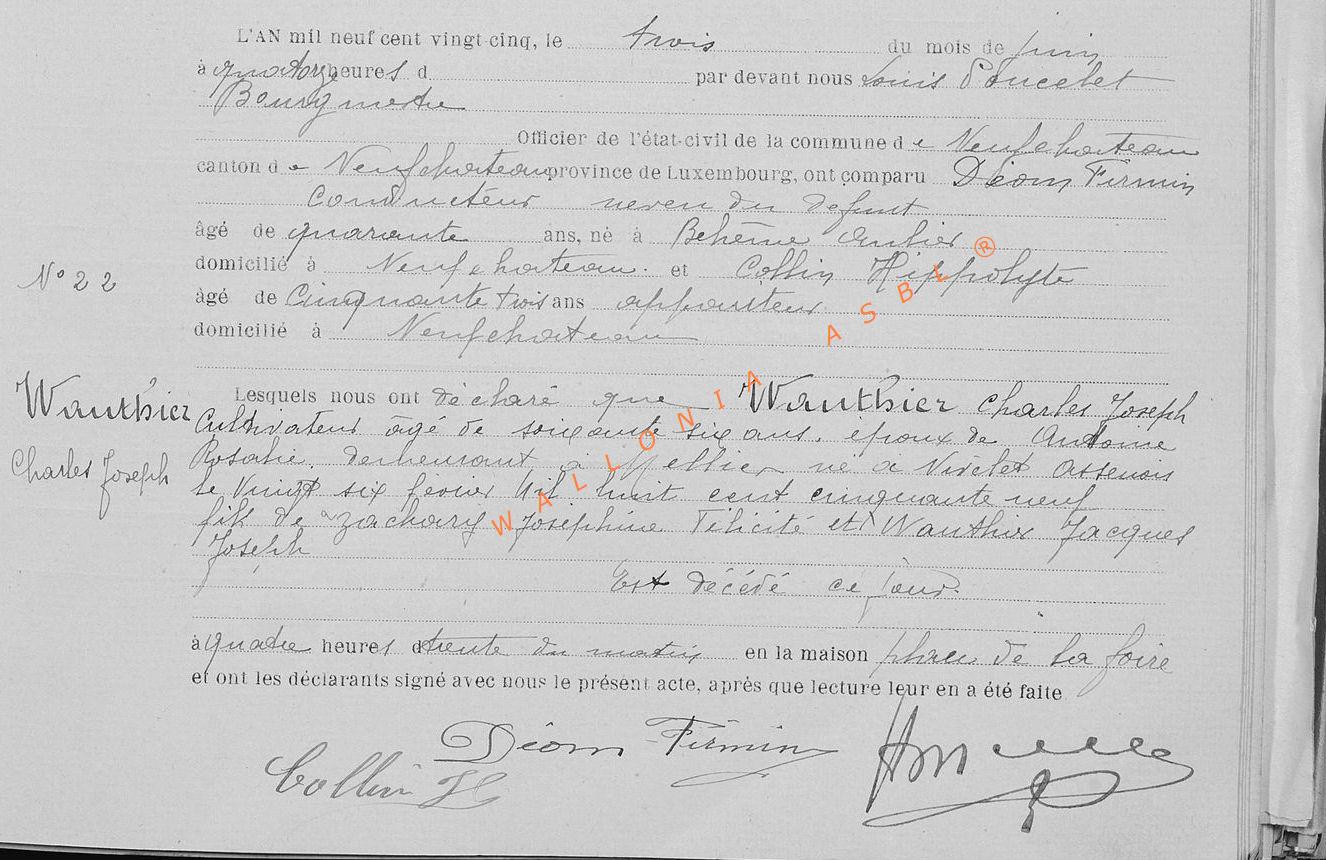 L'AN mil neuf cent vingt-cinq, le trois du mois de juin
à quatorze heures d par devant nous Louis Poncelet
Bourgmestre
Officier de l'état-civil de la commune d e Neufchateau
canton d e Neufchateau province de Luxembourg, ont comparu Déom Firmin
Conducteur neveu du defunt
âgé de quarante ans, né à Behême Anlier
domicilié à Neufchateau. et Collin Hippolyte
N° 22
âgé de Cinquante trois ans appariteur
domicilié à Neufchateau
Lesquels nous ont déclaré que Wauthier Charles Joseph
Wauthier
Cultivateur âgé de soixante six ans. epoux de Antoine
Charles Joseph
Rosalie. demeurant a Mellier né a Nivelet Assenois
le Vingt six fevrier Mil huit cent cinquante neuf
fils de Zachary Joséphine Félicité et Wauthier Jacques
Joseph
Est décédé ce jour.
à quatre heures d trente du matin en la maison place de la foire
et ont les déclarants signé avec nous le présent acte, après que lecture leur en a été faite
Déom Firmin
Collin H
WALLONIA ASBL ®